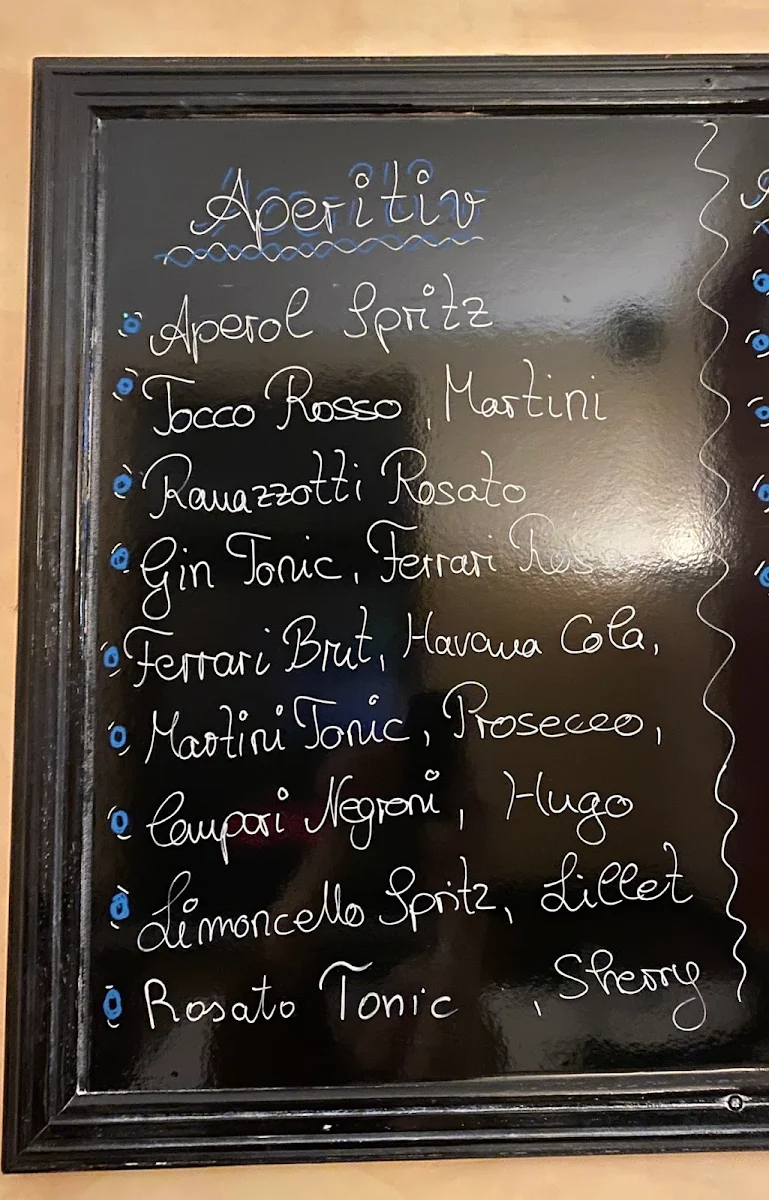 Aperitiv
Aperol Spritz
Tocco Rosso, Martini
Ramazzotti Rosato
Gin Tonic, Ferrari
Ferrari Brut, Havana Cola,
Martini Tonic, Prosecco,
Campari Negroni, Hugo
Limoncello Spritz, Lillet
Rosato Tonic , Sherry